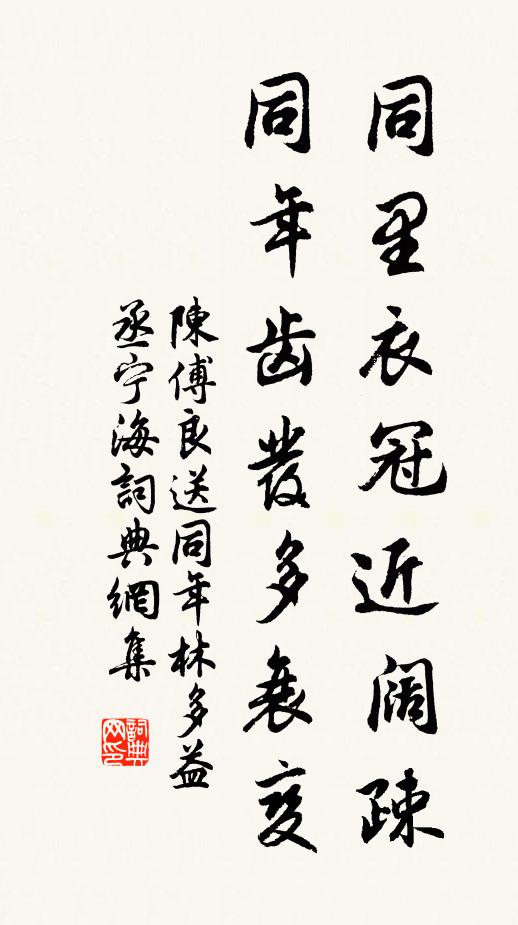 同里衣冠近阔疎
同年齿发多衰变
陳傅良送同年林多益
丞宁海詞典網集
詞典网印